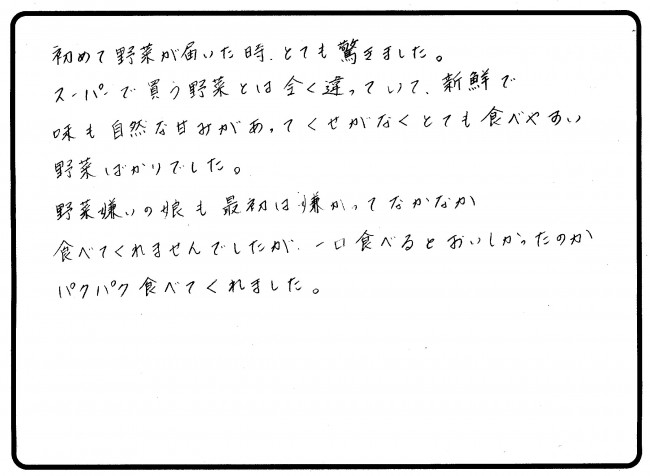 初めて野菜が届いた時、とても驚きました。
スーパーで買う野菜とは全く違っていて、新鮮で
味も自然な甘みがあってくせがなくとても食べやすい
野菜ばかりでした。
野菜嫌いの娘も最初は嫌がってなかなか
食べてくれませんでしたが、一口食べるとおいしかったのか
パクパク食べてくれました。